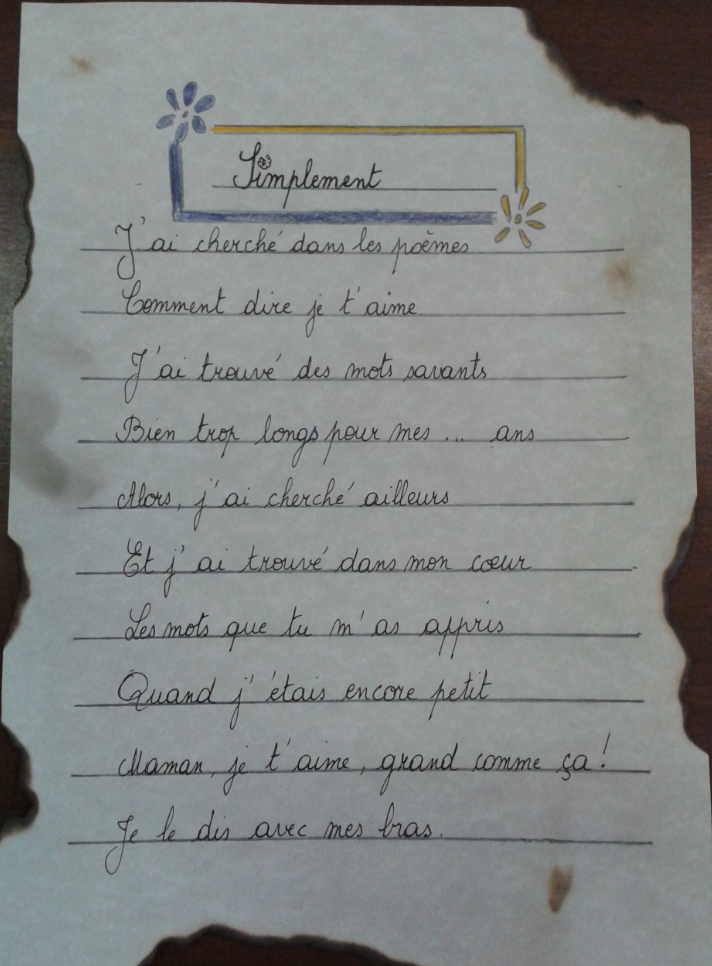 Simplement
J'ai cherché dans les poèmes
Comment dire je t'aime
J'ai trouvé des mots savants
Bien trop longs pour mes ... ans
Alors, j'ai cherché ailleurs
Et j'ai trouvé dans mon cœur
Les mots que tu m'as appris
Quand j'étais encore petit
Maman, je t'aime, grand comme ça !
Je le dis avec mes bras.